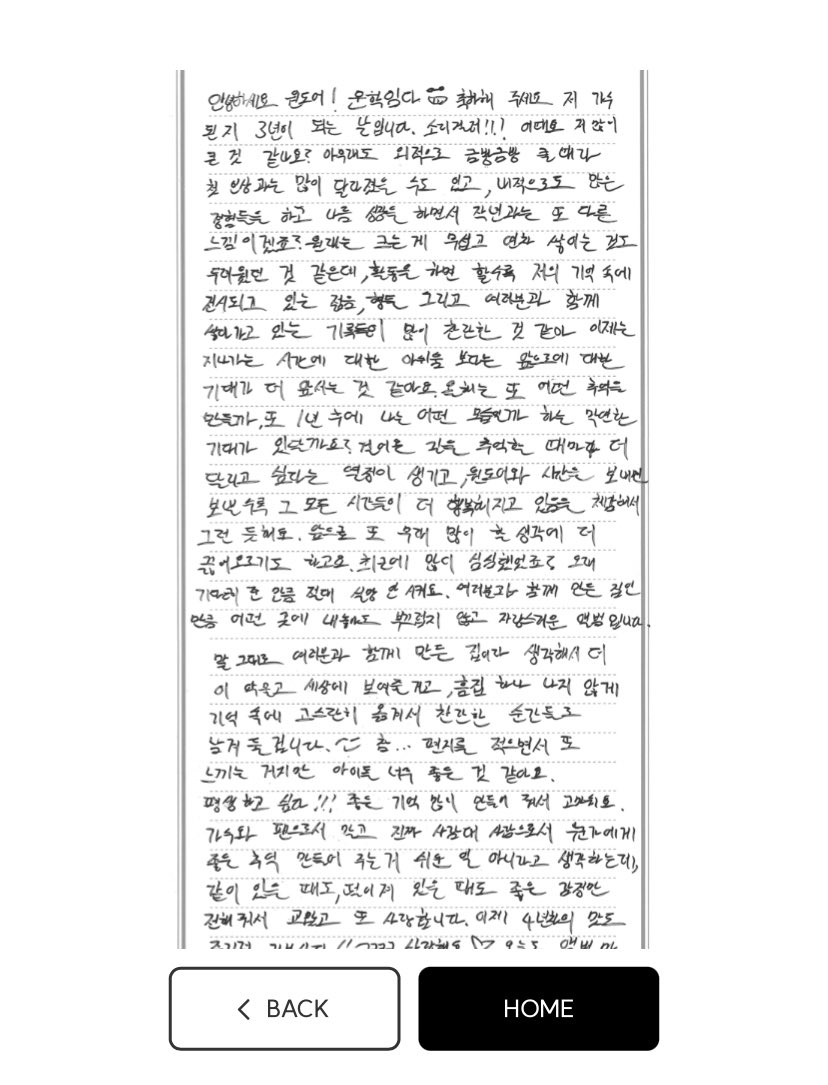 안녕하세요 원도어! 운학임다 축하해 주세요 저 가수
된지 3년이 되는 날입니다. 소리질러!!! 어때요 저 많이
큰 것 같나요? 아무래도 외적으로 금방금방 클 때라
첫 인상과는 많이 달라졌을 수도 있고, 내적으로도 많은
경험들을 하고 나름 성장을 하면서 작년과는 또 다른
느낌이겠죠? 원래는 크는게 무섭고 연차 쌓이는 것도
두려웠던 것 같은데, 활동을 하면 할수록 저의 기억 속에
전시되고 있는 젊음, 형들 그리고 여러분과 함께
살아가고 있는 기록들이 많이 찬란한 것 같아 이제는
지나가는 시간에 대한 아쉬움 보다는 앞으로에 대한
기대가 더 앞서는 것 같아요. 올해는 또 어떤 추억을
만들까, 또 1년 후에 나는 어떤 모습일까 하는 막연한
기대가 있달까요? 걸어온 길을 추억할 때마다 더
달리고 싶다는 열정이 생기고, 원도어와 시간을 보내면
보낼수록 그 모든 시간들이 더 행복해지고 있음을 체감해서
그런 듯해요. 앞으로 또 우리 많이 할 생각에 더
끓어오르기도 하고요. 최근에 많이 심심했었죠? 오래
기다려 준 만큼 절대 실망 안 시켜요. 여러분과 함께 만든 집인
만큼 어떤 곳에 내놔도 부끄럽지 않고 자랑스러운 앨범입니다.
말 그대로 여러분과 함께 만든 집이라 생각해서 더
이 악물고 세상에 보여줄거고, 흠집 하나 나지 않게
기억 속에 고스란히 옮겨서 찬란한 순간들로
남겨 둘겁니다. 참... 편지를 적으면서 또
느끼는 거지만 아이돌 너무 좋은 것 같아요.
평생 하고 싶다!!! 좋은 기억 많이 만들어 줘서 고마워요.
가수와 팬으로서 만나고 진짜 사람대 사람으로서 누군가에게
좋은 추억 만들어 주는거 쉬운 일 아니라고 생각하는데,
같이 있을 때도, 떨어져 있을 때도 좋은 감정만
전해줘서 고맙고 또 사랑합니다. 이제 4년차의 맛도
BACK
HOME